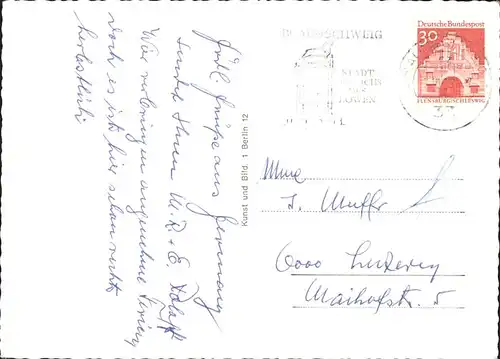 Gute Grüsse aus Germany
sendet Ihnen M. R. + E.
Wir verbringen angenehme
doch es ist hier schon recht
herbstlich
Kunst und Bild, 1 Berlin 12
BRAUNSCHWEIG
STADT
LÖWEN
Deutsche Bundespost
30
FLENSBURG/SCHLESWIG
33
Mme
J. Muffler
6000 Luzern
Maihofstr. 5